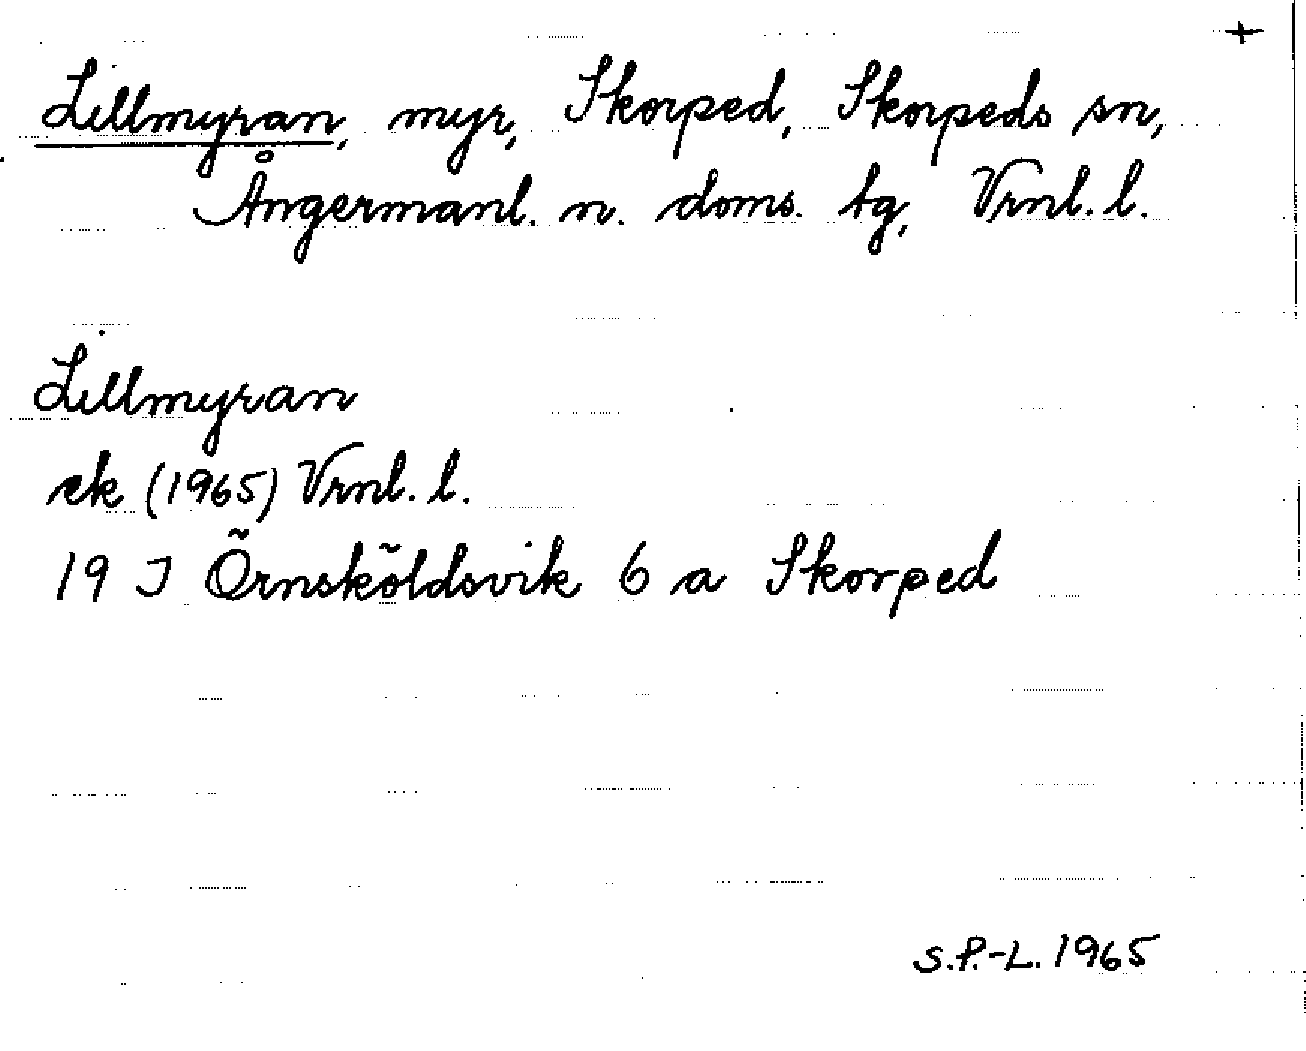 +
Lillmyran, myr, Skorped, Skorpeds sn,
Ångermanl. n. doms. tg, Vrnl. l.
Lillmyran
ek (1965) Vrnl. l.
19 J Örnsköldsvik 6 a Skorped
S.P.-L. 1965